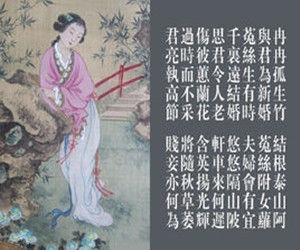 冉冉孤生竹
與君為新婚
菟絲生有時
千裏遠結婚
思君令人老
傷彼蕙蘭花
過時而不采
君亮執高節
結根泰山阿
菟絲附女蘿
夫婦會有宜
悠悠隔山陂
軒車來何遲
含英揚光輝
將隨秋草萎
賤妾亦何為